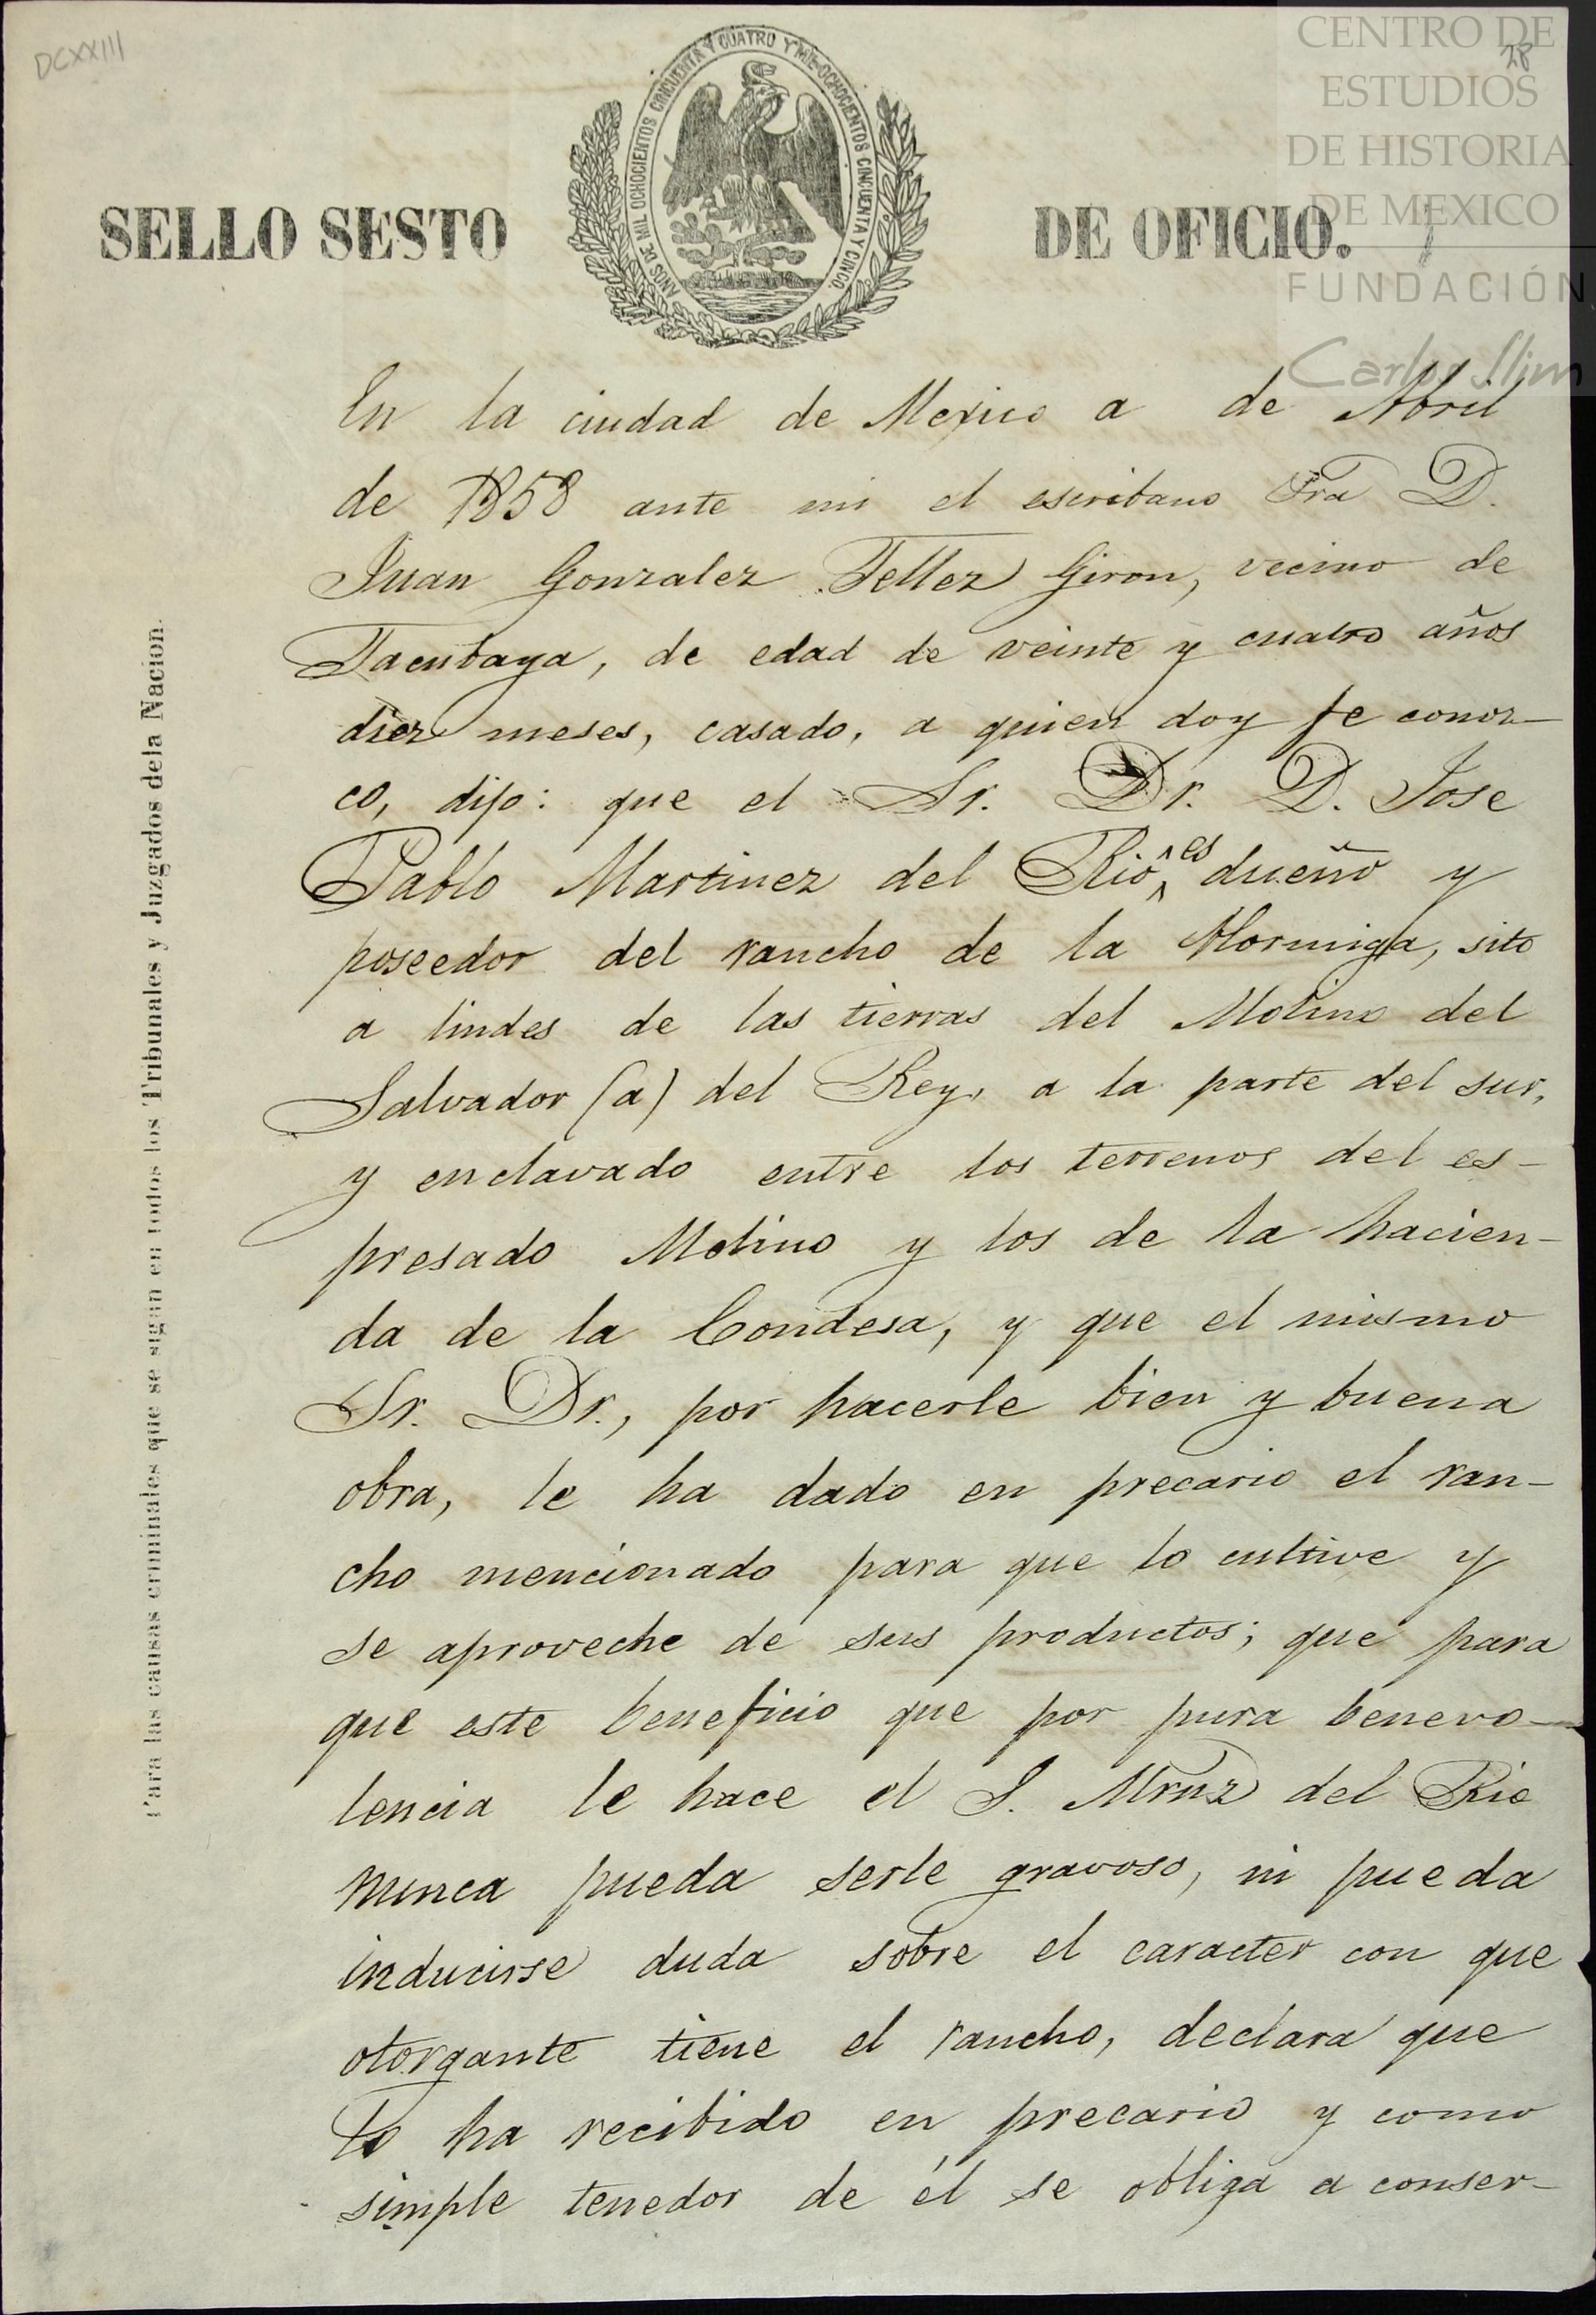 DCXXIII
28
CENTRO DE
ESTUDIOS
DE HISTORIA
DE MEXICO
FUNDACIÓN
Carlos Slim
AÑOS DE MIL OCHOCIENTOS CINCUENTA Y CUATRO Y MIL OCHOCIENTOS CINCUENTA Y CINCO.
SELLO SESTO DE OFICIO.
Para las causas criminales que se sigan en todos los Tribunales y Juzgados dela Nacion.
En la ciudad de Mexico a de Abril
de 1858 ante mi el escribano D.
Juan Gonzalez Tellez Giron, vecino de
Tacubaya, de edad de veinte y cuatro años
diez meses, casado, a quien doy fe conoz-
co, dijo: que el Sr. Dr. D. Jose
Pablo Martinez del Rio es dueño y
poseedor del rancho de la Hormiga, sito
a lindes de las tierras del Molino del
Salvador (a) del Rey, a la parte del sur,
y enclavado entre los terrenos del es-
presado Molino y los de la hacien-
da de la Condesa, y que el mismo
Sr. Dr., por hacerle bien y buena
obra, le ha dado en precario el ran-
cho mencionado para que lo cultive y
se aproveche de sus productos; que para
que este beneficio que por pura benevo-
lencia le hace el S. Mrnz del Rio
nunca pueda serle gravoso, ni pueda
inducirse duda sobre el caracter con que
otorgante tiene el rancho, declara que
lo ha recibido en precario y como
simple tenedor de él se obliga a conser-